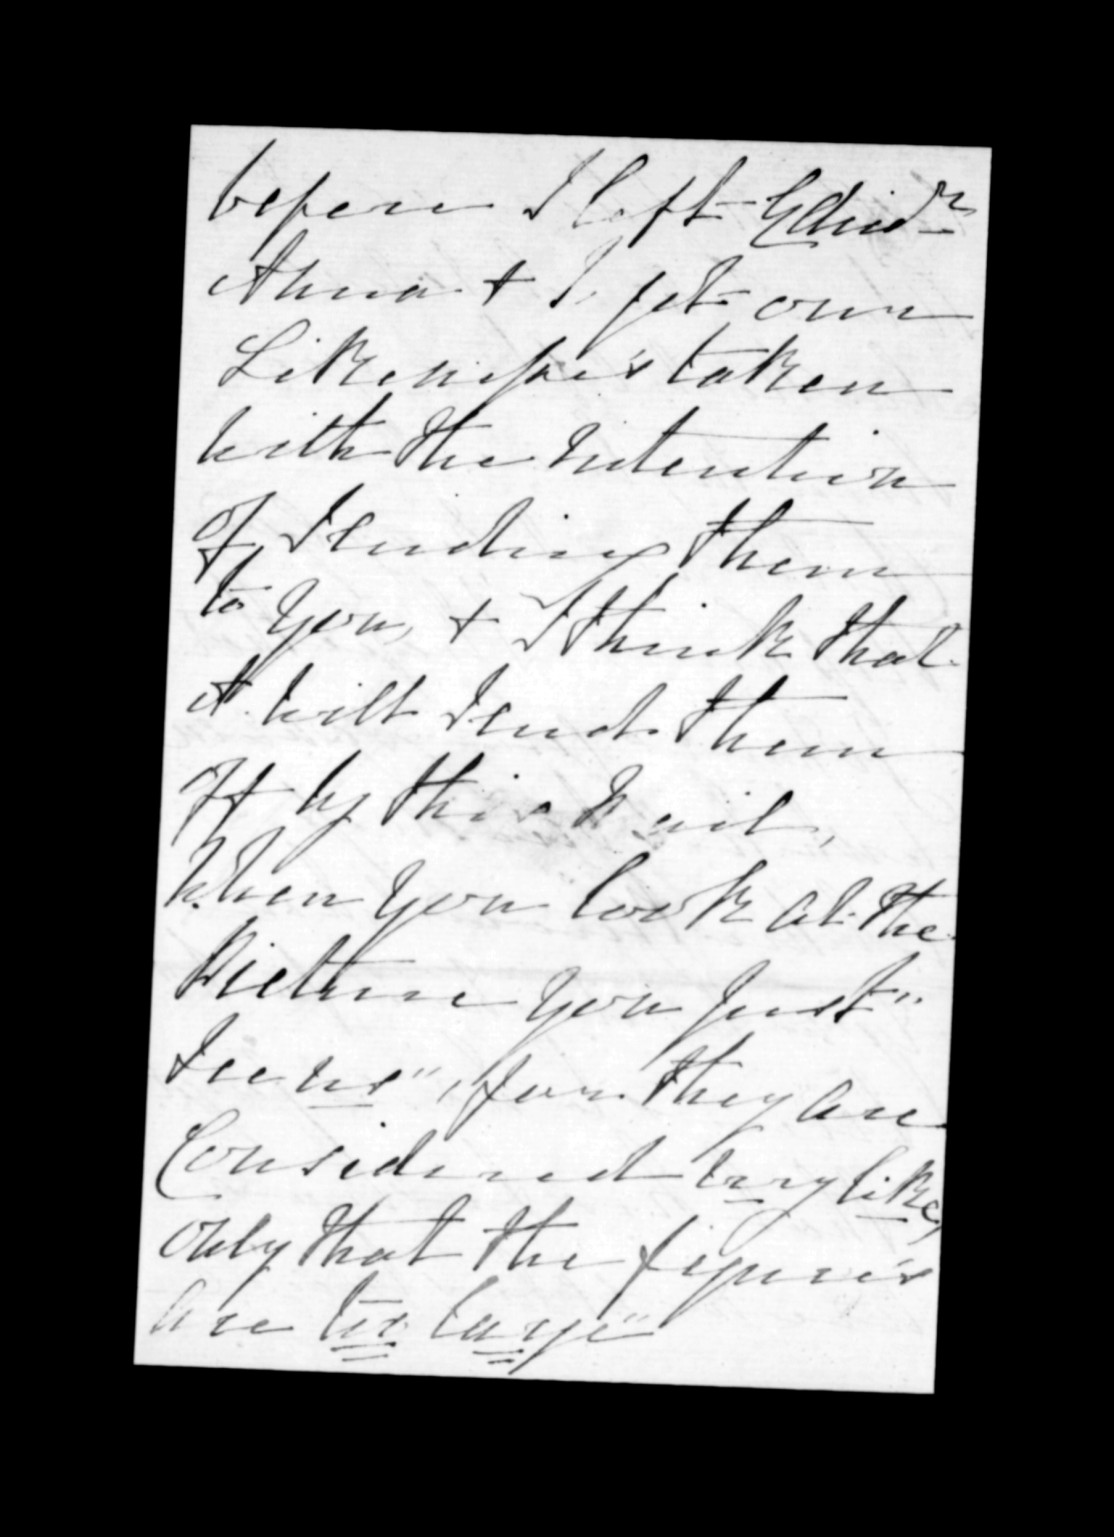 before I left Edinr
Anna & I got our
Likenesse's taken
with the intention
of Sending them
to you, & I think that
it will Send them
off by this Mail,
When you look at the
Picture you just "
See us", for they are
Considered very like,
only that the figure's
are too large"